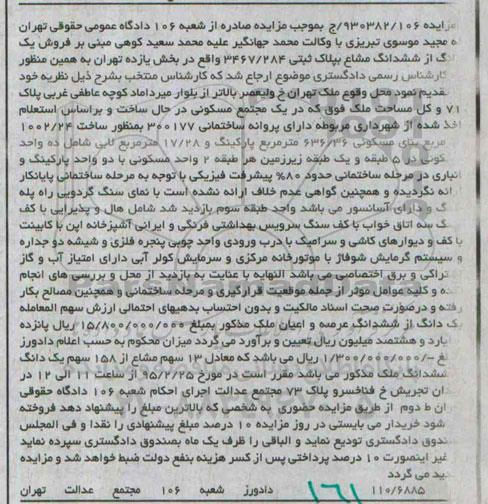 مزایده ۹۳۰۳۸۲/۱۰۶/ج بموجب مزایده صادره از شعبه ۱۰۶ دادگاه عمومی حقوقی تهران
مجید موسوی تبریزی با وکالت محمد جهانگیر علیه محمد سعید کوهی مبنی بر فروش یک
از ششدانگ مشاع بپلاک ثبتی ۳۴۶۷/۲۸۴ واقع در بخش یازده تهران به همین منظور
کارشناس رسمی دادگستری موضوع ارجاع شد که کارشناس منتخب بشرح ذیل نظریه خود
تقدیم نمود محل وقوع ملک تهران خ ولیعصر بالاتر از بلوار میرداماد کوچه عاطفی غربی پلاک
۷۱ و کل مساحت ملک فوق که در یک مجتمع مسکونی در حال ساخت و براساس استعلام
اخذ شده از شهرداری مربوطه دارای پروانه ساختمانی ۳۰۰۱۷۷ بمنظور ساخت ۱۰۰۲/۲۴
مربع بنای مسکونی ۶۳۶/۳۶ مترمربع پارکینگ و ۱۷/۲۸ مترمربع لابی شامل ده واحد
۵ طبقه و یک طبقه زیرزمین هر طبقه ۲ واحد مسکونی با دو واحد پارکینگ و
انباری در مرحله ساختمانی حدود ۸۰% پیشرفت فیزیکی با توجه به مرحله ساختمانی پایانکار
نگردیده و همچنین گواهی عدم خلاف ارائه نشده است با نمای سنگ گردویی راه پله
و دارای آسانسور می باشد واحد طبقه سوم بازدید شد شامل هال و پذیرایی با کف
سه اتاق خواب با کف سنگ سرویس بهداشتی فرنگی و ایرانی آشپزخانه اپن با کابینت
با کف و دیوارهای کاشی و سرامیک با درب ورودی واحد چوبی پنجره فلزی و شیشه دو جداره
و سیستم گرمایش شوفاژ با موتورخانه مرکزی و سرمایش کولر آبی دارای امتیاز آب و گاز
اشتراکی و برق اختصاصی می باشد النهایه با عنایت به بازدید از محل و بررسی های انجام
شده و کلیه عوامل موثر از جمله موقعیت قرارگیری و مرحله ساختمانی و همچنین مصالح بکار
رفته و درصورت صحت اسناد مالکیت و بدون احتساب بدهیهای احتمالی ارزش سهم المعامله
یک دانگ از ششدانگ عرصه و اعیان ملک مذکور بمبلغ ۱۵/۸۰۰/۰۰۰/۰۰۰ ریال پانزده
میلیارد و هشتصد میلیون ریال تعیین و برآورد می گردد میزان محکوم به حسب اعلام دادورز
۱/۳۰۰/۰۰۰/۰۰۰/- ریال می باشد که معادل ۱۳ سهم مشاع از ۱۵۸ سهم یک دانگ
ششدانگ ملک مذکور می باشد مقرر است در مورخ ۹۵/۲/۲۵ از ساعت ۱۱ الی ۱۲ در
تجریش خ فناخسرو پلاک ۷۳ مجتمع عدالت اجرای احکام شعبه ۱۰۶ دادگاه حقوقی
ط دوم از طریق مزایده حضوری به شخصی که بالاترین مبلغ را پیشنهاد دهد فروخته
شود خریدار می بایستی در روز مزایده ۱۰ درصد مبلغ پیشنهادی را نقدا و فی المجلس
صندوق دادگستری تودیع نماید و الباقی را ظرف یک ماه بصندوق دادگستری سپرده نماید
غیر اینصورت ۱۰ درصد پرداختی پس از کسر هزینه بنفع دولت ضبط خواهد شد و مزایده
می گردد
۱۱۰/۶۸۸۵ دادورز شعبه ۱۰۶ مجتمع عدالت تهران
۱۶۱